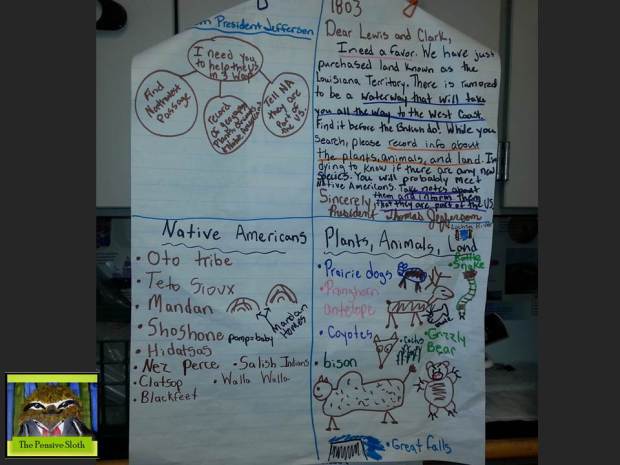 President Jefferson
I need you
to help the US
in 3 ways
Find
Northwest
Passage
Record
Tell NA
they are
Part of
the US.
1803
Dear Lewis and Clark,
I need a favor. We have just
purchased land known as the
Louisiana Territory. There is rumored
to be a waterway that will take
you all the way to the West Coast.
Find it before the British do! While you
search, please record info about
the plants, animals, and land. I'm
dying to know if there are any new
species. You will probably meet
Native Americans. Take notes about
them and inform them
that they are part of the US.
Sincerely,
President Thomas Jefferson
Native Americans
• Oto tribe
• Teto Sioux
• Mandan
• Shoshone
• Hidatsas
• Nez Perce
• Salish Indians
• Clatsop
• Walla Walla
• Blackfeet
pomp=baby
Mandan
Homes
Plants, Animals, Land
• Prairie dogs
• Pronghorn
antelope
• Coyotes
• bison
Rattle
Snake
• Cactus
• Grizzly
Bear
• Great falls
The Pensive Sloth